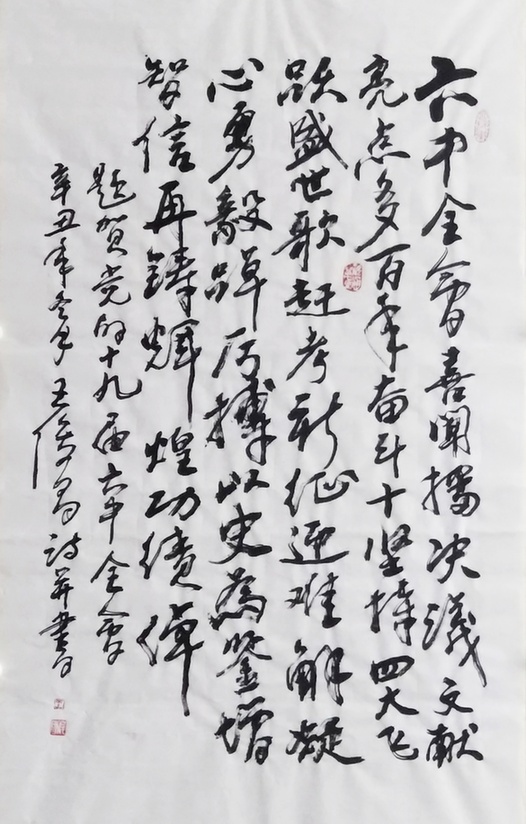 六中全會喜聞播决議文献
亮点多百年奋斗十坚持四大飞
跃盛世歌赶考新征迎难解凝
心勇毅踔厉搏以史為鉴增
智信再鑄輝煌功绩倬
题贺党的十九届六中全會
辛丑年冬月王诗并書